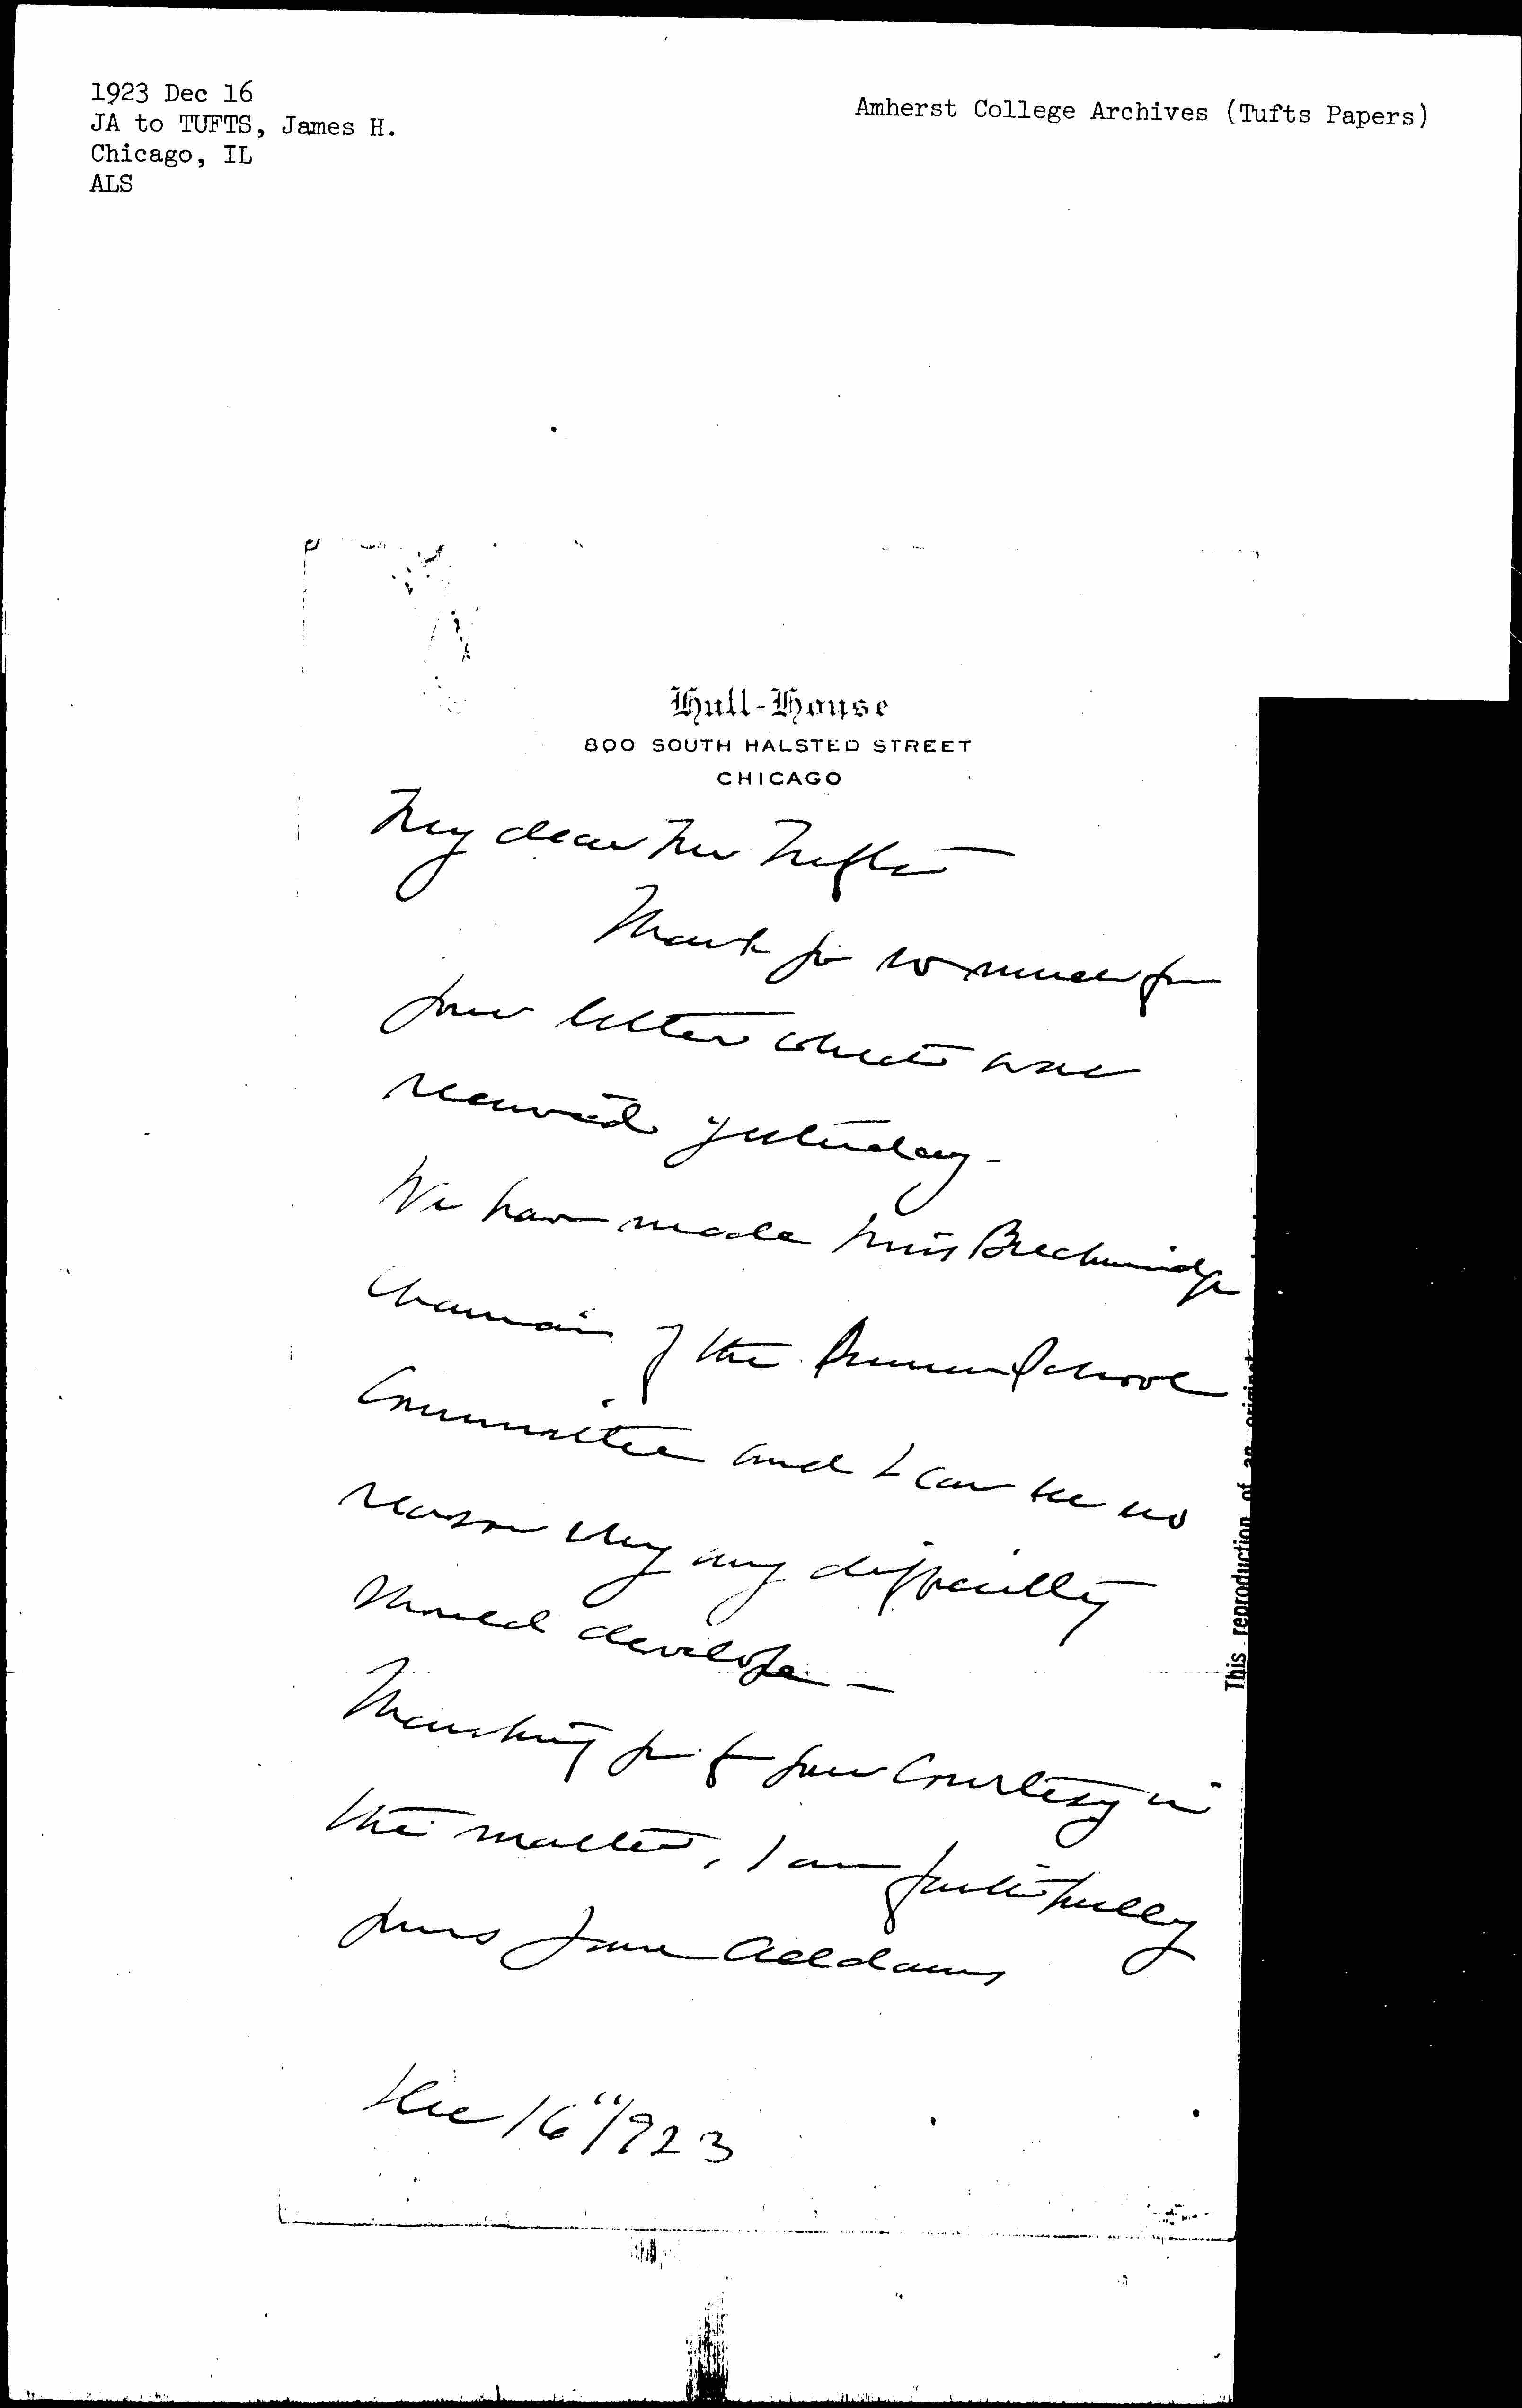 1923 Dec 16
JA to TUFTS, James H.
Chicago, IL
ALS
Amherst College Archives (Tufts Papers)
Hull-House
800 SOUTH HALSTED STREET
CHICAGO
My dear Mr Tufts
Thank you so much for
your letter which was
received yesterday -
We have made Miss Breckinridge
chairman of the Summer School
Committee and I can see no
reason why any difficulty
should develope -
Thanking you for your courtesy in
the matter, I am faithfully
yours Jane Addams
Dec 16" 1923
This reproduction of an